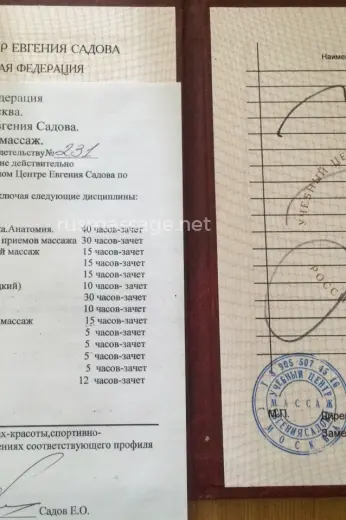 Р ЕВГЕНИЯ САДОВА
АЯ ФЕДЕРАЦИЯ
едерация
сква.
вгения Садова.
массаж.
детельству № 231
ние действительно
ном Центре Евгения Садова по
включая следующие дисциплины:
га.Анатомия. 40 часов-зачет
приемов массажа 30 часов-зачет
й массаж 15 часов-зачет
15 часов-зачет
15 часов-зачет
цкий) 10 часов- зачет
30 часов-зачет
10 часов-зачет
массаж 15 часов-зачет
5 часов-зачет
5 часов-зачет
5 часов-зачет
5 часов-зачет
12 часов-зачет
ах-красоты,спортивно-
ениях соответствующего профиля
Садов Е.О.
rusmassage.net
Наимен
УЧЕБНЫЙ ЦЕ
РОССИ
8 905 507 45 16
УЧЕБНЫЙ ЦЕНТР
МАССАЖ
ЕВГЕНИЯ САДОВА
МОСК
М.П.
Дирек
Заме